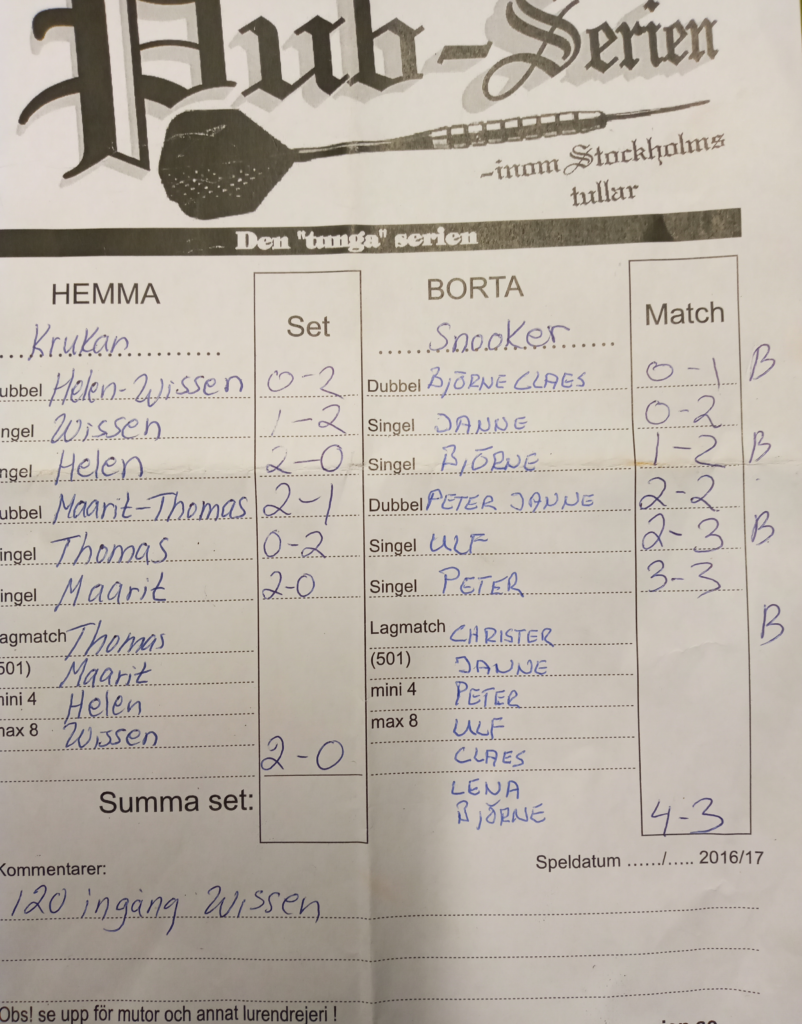 Pub-Serien
-inom Stockholms
tullar
Den "tunga" serien
HEMMA Set BORTA Match
...Krukan............ ......Snooker......
ubbel Helen-Wissen 0-2 Dubbel BJÖRNE CLAES 0-1 B
ngel Wissen 1-2 Singel JANNE 0-2
ngel Helen 2-0 Singel BJÖRNE 1-2 B
ubbel Maarit-Thomas 2-1 Dubbel PETER JANNE 2-2
ingel Thomas 0-2 Singel ULF 2-3 B
ingel Maarit 2-0 Singel PETER 3-3
agmatch Thomas Lagmatch CHRISTER B
501) Maarit (501) JANNE
nini 4 Helen mini 4 PETER
nax 8 Wissen max 8 ULF
2-0 CLAES
Summa set: LENA
BJÖRNE 4-3
Kommentarer: Speldatum ....../..... 2016/17
120 ingång Wissen
Obs! se upp för mutor och annat lurendrejeri !